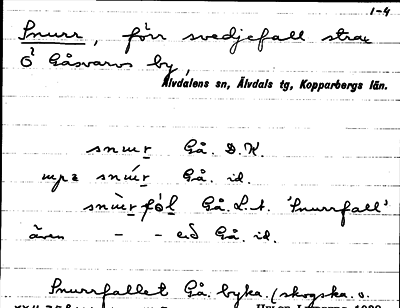 1-4
Snurr, förr svedjefall strax
Ö Gåsvarvs by,
Älvdalens sn, Älvdals tg, Kopparbergs län.
snur Gå. D.K.
snúr Gå. id.
snùrfól Gå. L.t. 'Snurrfall'
även - - Gå. id.
Snurrfallet Gå. byka. (skogska. o.